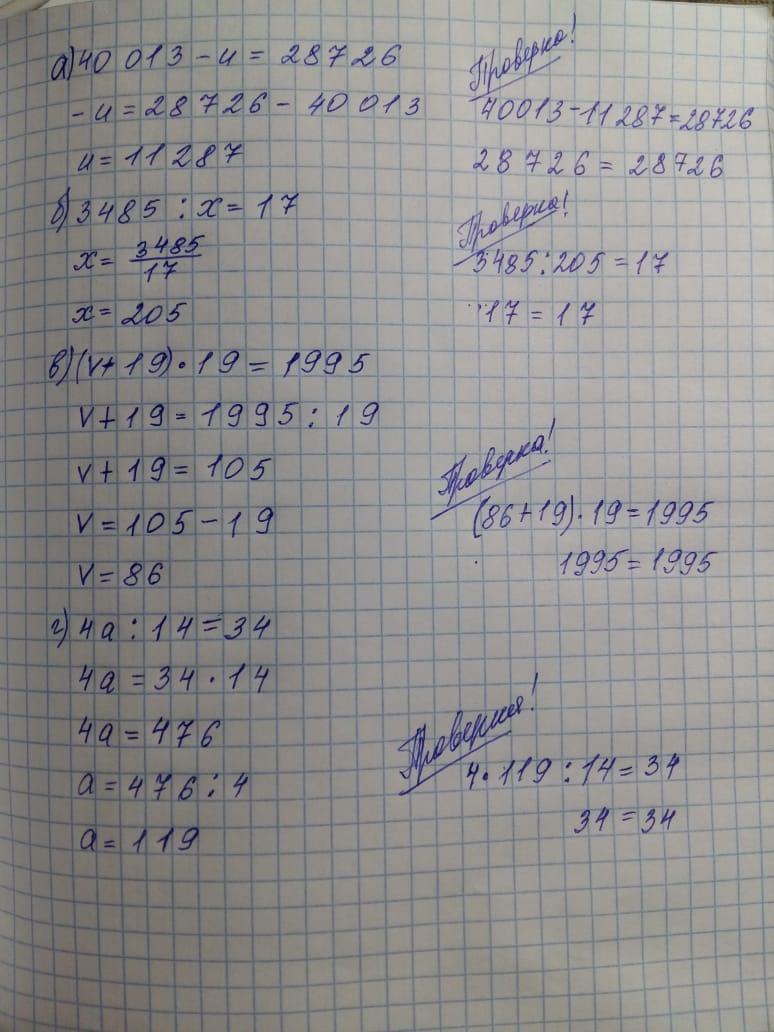 а) 40 013 - u = 28726
Проверка!
- u = 28 726 - 40 013
40013 - 11 287 = 28726
u = 11 287
28 726 = 28726
б) 3485 : x = 17
Проверка!
x = 3485/17
3485 : 205 = 17
x = 205
17 = 17
в) (v + 19) · 19 = 1995
v + 19 = 1995 : 19
v + 19 = 105
Проверка!
v = 105 - 19
(86 + 19) · 19 = 1995
v = 86
1995 = 1995
г) 4a : 14 = 34
4a = 34 · 14
4a = 476
Проверка!
a = 476 : 4
4 · 119 : 14 = 34
a = 119
34 = 34